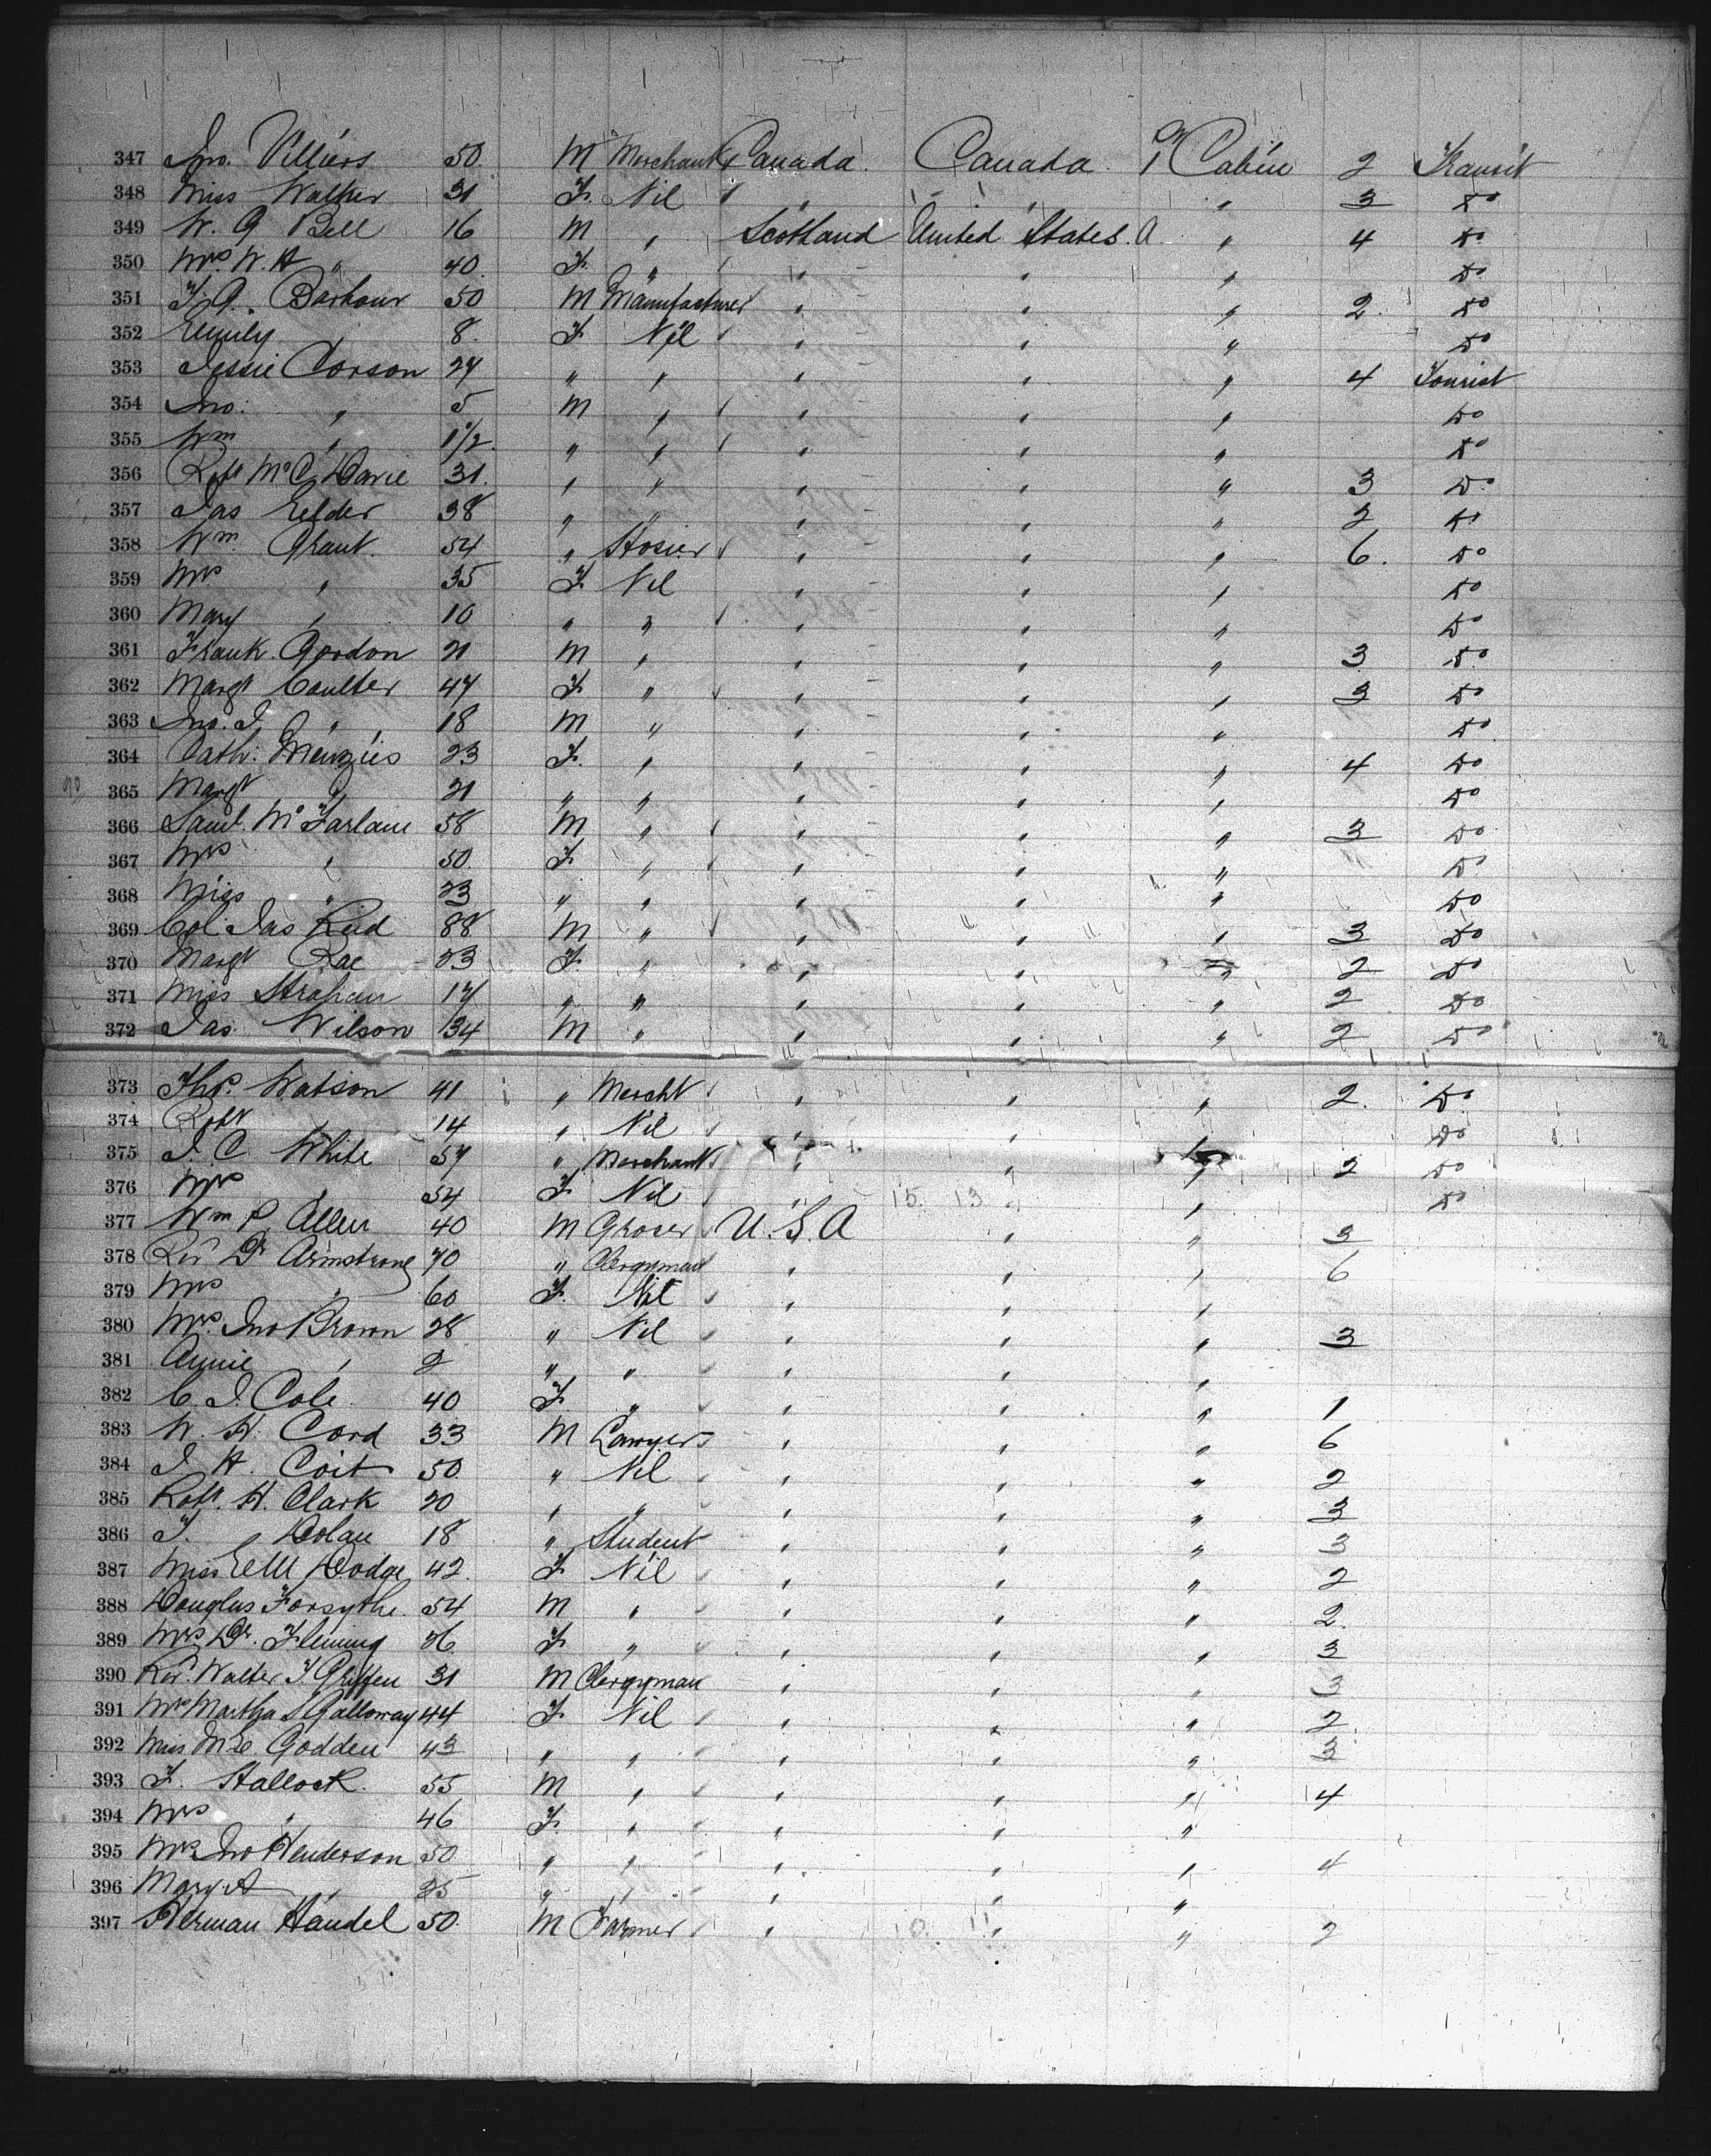 347 Jno. Villiers 50. M Merchant Canada. Canada. 1 Cabin 2 Transit
348 Miss Walker 31 F. Nil " " " 3 Do
349 W. G Bell 16 M " Scotland United States. A " 4 Do
350 Mrs. W. H " 40. F. " " " " Do
351 F. G. Barbour 50 M Manufacturer " " " 2. Do
352 Emily " 8. F Nil " " " Do
353 Jessie Corson 27 " " " " " 4 Tourist
354 Jno. " 5 M " " " " Do
355 Wm " 1 1/2. " " " " " Do
356 Robt McC Davie 31. " " " " " 3 Do.
357 Jas Elder 38 " " " " " 2 Do
358 Wm. Grant. 54 " Hosier " " " 6. Do
359 Mrs " 35 F Nil " " " Do
360 Mary " 10 " " " " " Do
361 Frank. Gordon 21 M " " " " 3 Do
362 Margt Coulter 47 F " " " " 3 Do
363 Jno. J. " 18 M " " " " Do
364 Cath: Menzies 23 F. " " " " 4 Do
365 Margt " 21 " " " " " Do
366 Saml. McFarlane 58 M " " " " 3 Do
367 Mrs " 50. F. " " " " Do
368 Miss " 23 " " " " " Do
369 Col Jas Reid 88 M " " " " 3 Do
370 Margt Rae 23 F. " " " " 2 Do
371 Miss Strahan 17 " " " " " 2 Do
372 Jas. Wilson 34 M " " " " 2 Do
373 Thos. Watson 41 " Mercht " " " 2. Do
374 Robt " 14 " Nil " " " Do
375 J. C. White 57 " Merchant " " " 2 Do
376 Mrs " 54 F Nil " " " Do
377 Wm P. Allen 40 M Grocer U. S. A " " 3
378 Rev Dr Armstrong 70 " Clergyman " " " 6
379 Mrs " 60 F. Nil " " "
380 Mrs. Jno Brown 28 " Nil " " " 3
381 Annie " 2 " " " " "
382 C. J. Cole. 40 F. " " " " 1
383 W. H. Cord 33 M Lawyer " " " 6
384 J. H. Coit 50. " Nil " " " 2
385 Robt. H. Clark 20 " " " " " 3
386 T. Dolan 18 " Student " " " 3
387 Miss E M Dodge 42. F Nil " " " 2
388 Douglas Forsythe. 54 M " " " " 2.
389 Mrs Dr. Fleming 26. F. " " " " 3
390 Rev. Walter T. Griffen 31 M Clergyman " " " 3
391 Mrs Martha S Galloway 44 F. Nil " " " 2
392 Miss M E Godden 43 " " " " " 3
393 F. Hallock. 55 M " " " " 4
394 Mrs " 46 F. " " " "
395 Mrs Jno Henderson 50 " " " " " 4
396 Mary A " 25 " " " " "
397 Herman Handel 50. M Farmer " " " 2